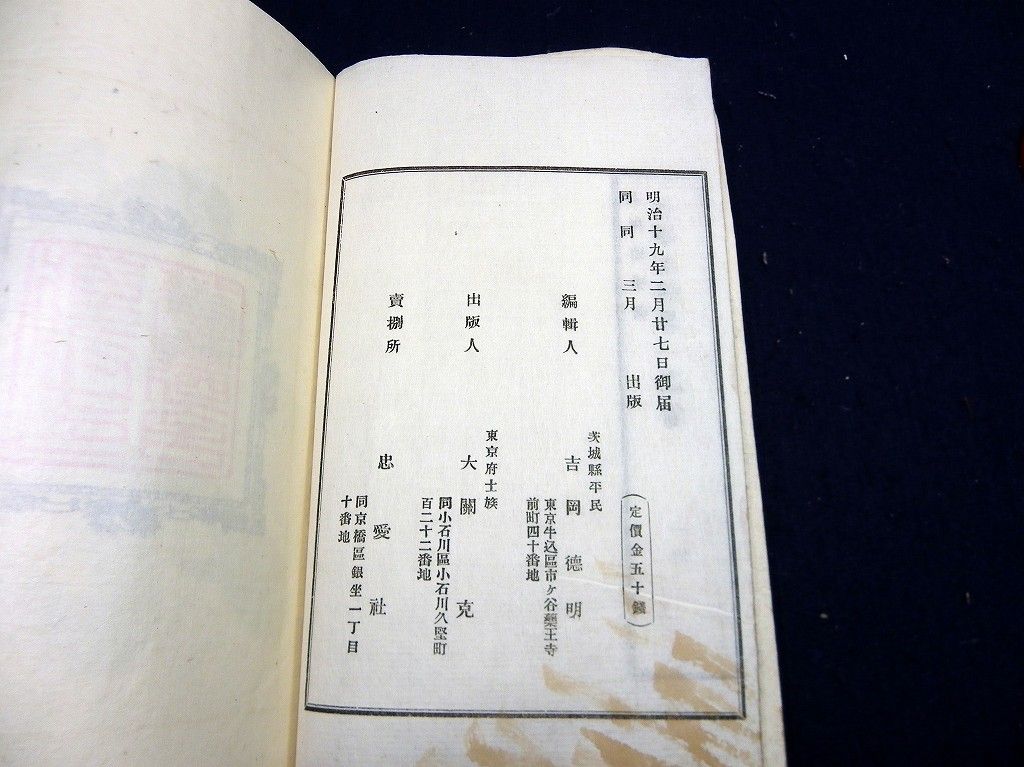 明治十九年二月廿七日御届
同同三月出版
(定價金五十錢)
茨城縣平民
編輯人 吉岡德明
東京牛込區市ヶ谷藥王寺
前町四十番地
東京府士族
出版人 大關克
同小石川區小石川久堅町
百二十二番地
賣捌所 忠愛社
同京橋區銀坐一丁目
十番地